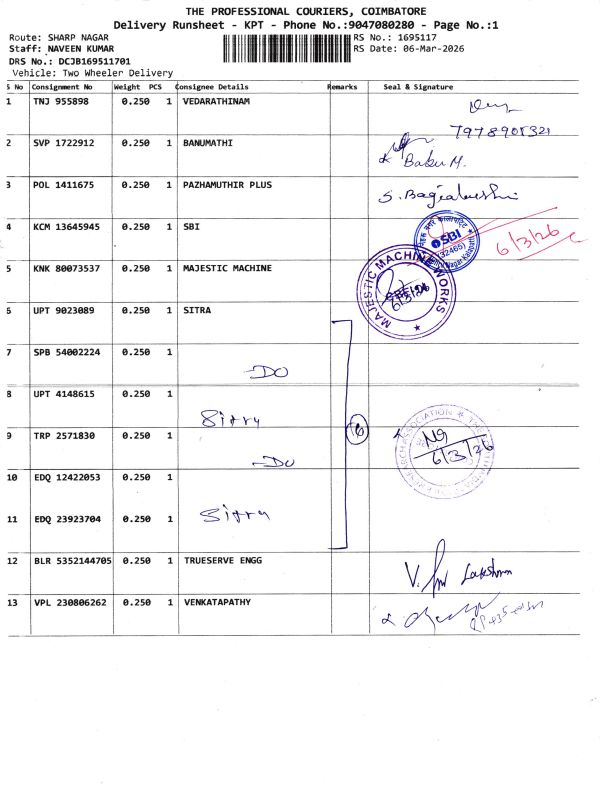 THE PROFESSIONAL COURIERS, COIMBATORE
Delivery Runsheet - KPT - Phone No.:9047080280 - Page No.:1
Route: SHARP NAGAR RS No.: 1695117
Staff: NAVEEN KUMAR RS Date: 06-Mar-2026
DRS No.: DCJB169511701
Vehicle: Two Wheeler Delivery
S No Consignment No Weight PCS Consignee Details Remarks Seal & Signature
1 TNJ 955898 0.250 1 VEDARATHINAM
7978905321
2 SVP 1722912 0.250 1 BANUMATHI
Babu M.
3 POL 1411675 0.250 1 PAZHAMUTHIR PLUS
4 KCM 13645945 0.250 1 SBI
SBI
(32465)
6/3/26
5 KNK 80073537 0.250 1 MAJESTIC MACHINE
MAJESTIC MACHINE WORKS
6/3/26
6 UPT 9023089 0.250 1 SITRA
7 SPB 54002224 0.250 1
-DO
8 UPT 4148615 0.250 1
Sitra
6
9 TRP 2571830 0.250 1
-DO
RESEARCH ASSOCIATION
6/3/26
10 EDQ 12422053 0.250 1
11 EDQ 23923704 0.250 1
Sitra
12 BLR 5352144705 0.250 1 TRUESERVE ENGG
Lakshman
13 VPL 230806262 0.250 1 VENKATAPATHY